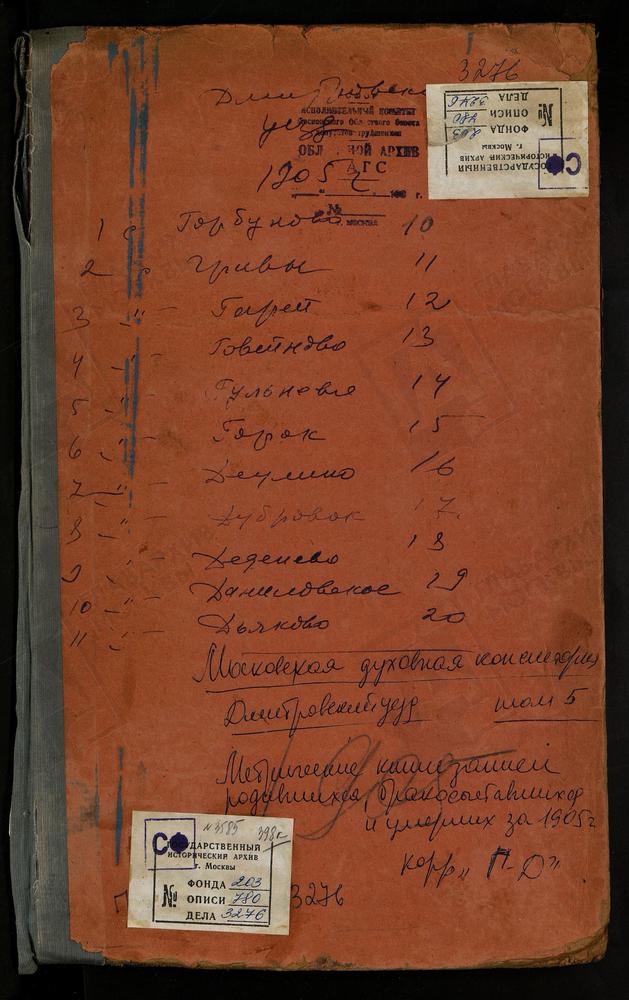 3276
Дмитровск
уезд
ИСПОЛНИТЕЛЬНЫЙ КОМИТЕТ
Московского Областного Совета
депутатов трудящихся
ОБЛ НОЙ АРХИВ
АГС
1905 г.
№
г. МОСКВА
СФ
ГОСУДАРСТВЕННЫЙ
ИСТОРИЧЕСКИЙ АРХИВ
г. Москвы
ФОНДА 203
№ ОПИСИ 780
ДЕЛА 3276
1 с Горбуново 10
2 с Гривы 11
3 " - Гарей 12
4 " - Говейново 13
5 " - Гульнево 14
6 " - Горок 15
7 " - Деулино 16
8 " - Дубровок 17
9 " - Деденево 18
10 " - Даниловское 19
11 " - Дьяково 20
Московская духовная консистория
Дмитровский уезд том 5
Метрические книги записей
родившихся, бракосочетавшихся
и умерших за 1905 г
корр „Г-Д"
№3585 398л
СФ
ГОСУДАРСТВЕННЫЙ
ИСТОРИЧЕСКИЙ АРХИВ
г. Москвы
ФОНДА 203
№ ОПИСИ 780
ДЕЛА 3276
3276